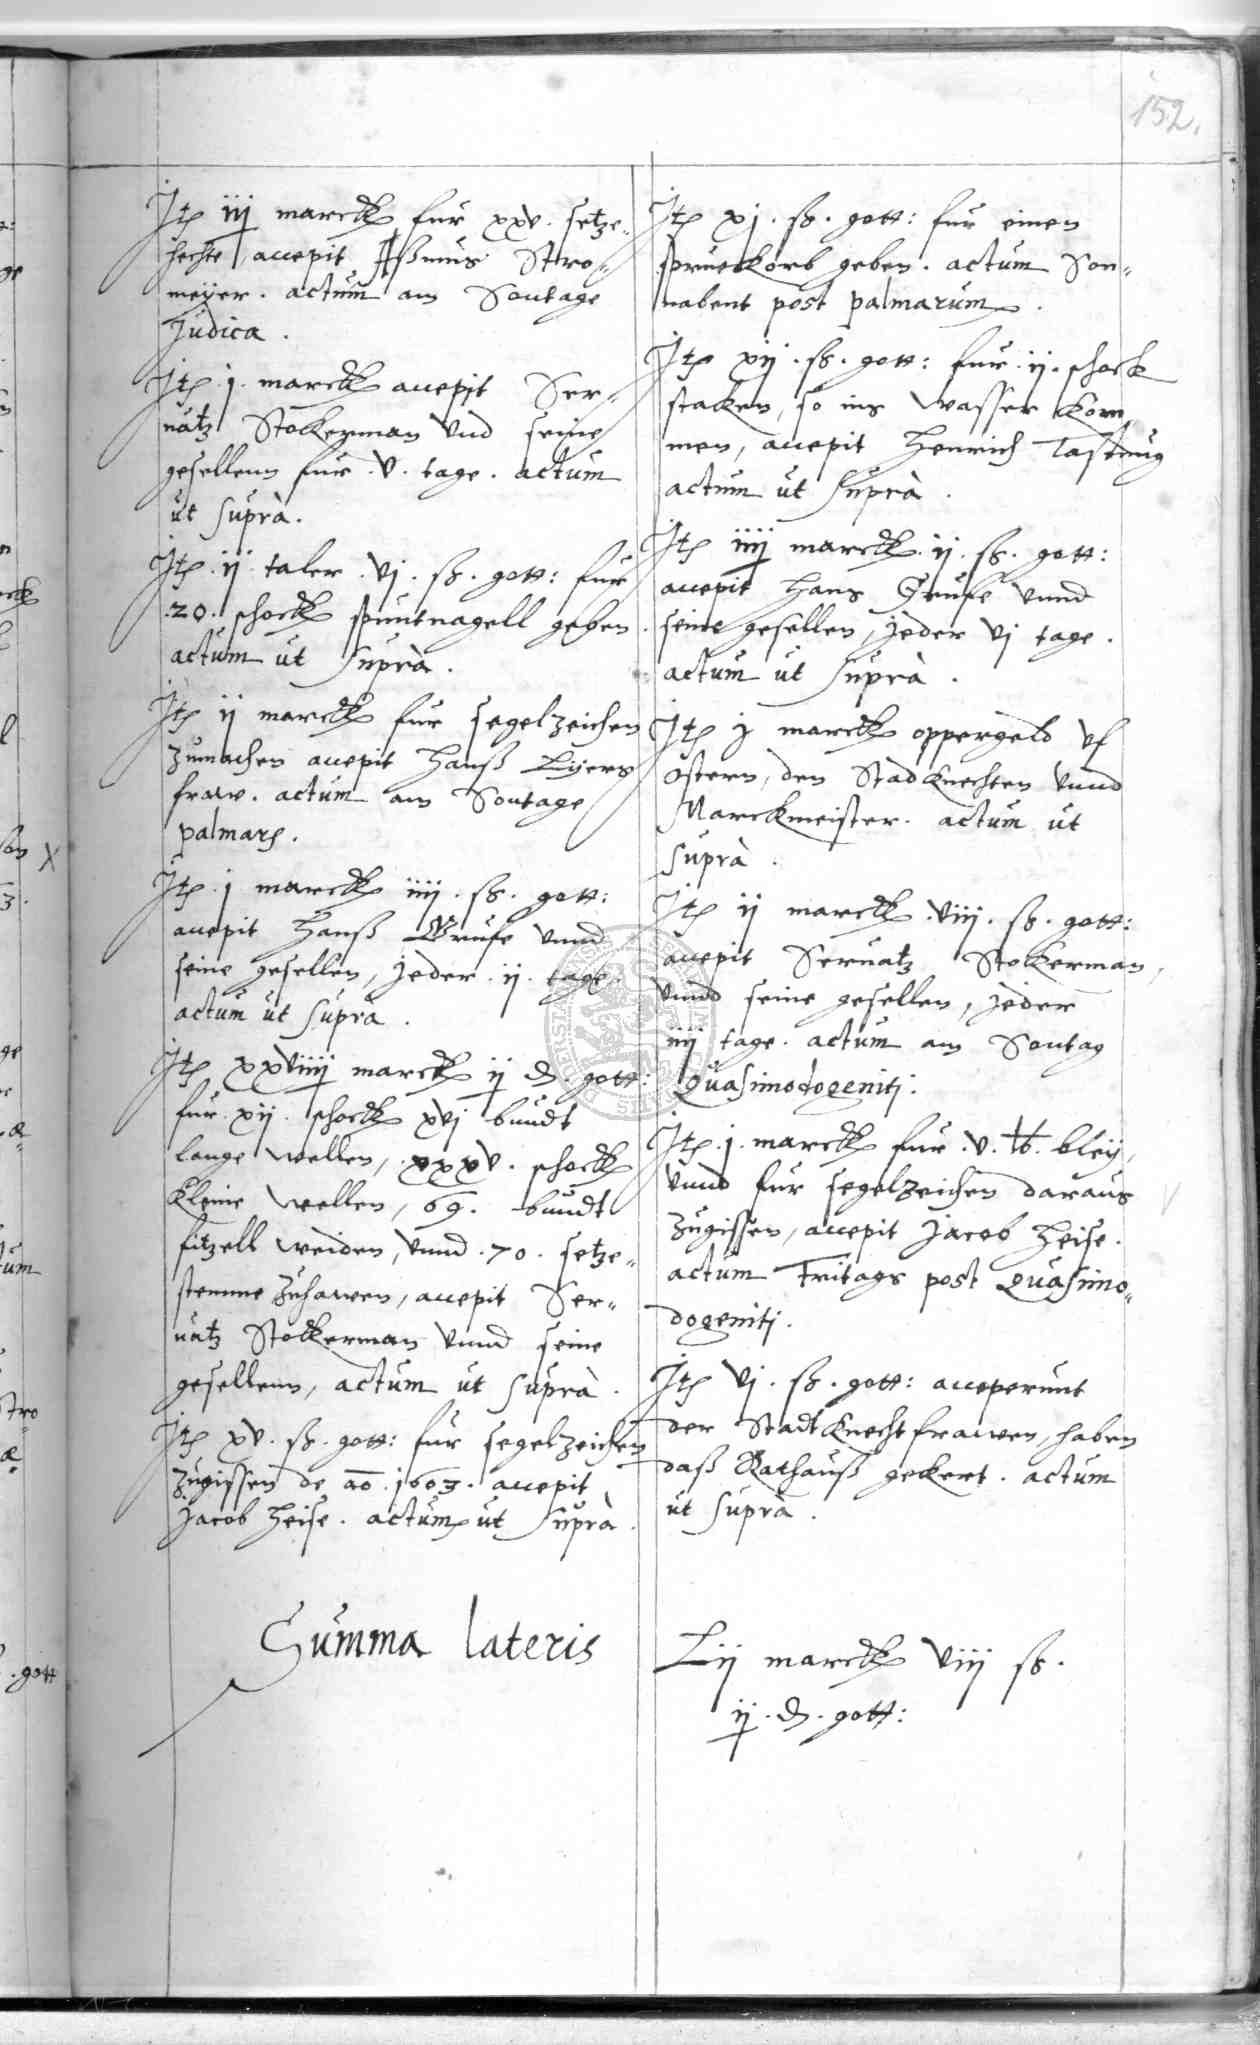 152.
Itē iij marck fur xxv. setze-
hechte, accepit Aßmus Stro-
meÿer. actum am Sontage
Judica.
Itē .j. marck accepit Ser-
uatz Stockerman vnd seine
gesellenn fur .v. tage. actum
ut suprà.
Itē .ij. taler .vj. ß. gott: fur
.20. schock spuntnagell geben.
actum ut suprà.
Itē ij marck fur segelzeichen
zumachen accepit Hanß
fraw. actum am Sontage
palmarū.
Itē .j marck iiij. ß. gott:
accepit Hanß Grufe vnnd
seine gesellen, jeder .ij. tage.
actum ut suprà.
Itē xxviiij marck ij d. gott:
fur xij. schock xvj bundt
lange wellen, .xxxv. schock
kleine wellen, 69. bundt
fitzell weiden, vnnd .70. setze-
stemme zuhawen, accepit Ser-
uatz Stockerman vnnd seine
gesellenn, actum ut suprà.
Itē xv. ß. gott: fur segelzeichen
zugissen de ao. 1603. accepit
Jacob Heise. actum ut suprà.
Itē xj. ß. gott: fur einen
korb geben. actum Son-
nabent post palmarum.
Itē xij. ß. gott: fur .ij. schock
staken, so ins wasser kom
men, accepit Henrich Tastung
actum ut suprà.
Itē iiij marck .ij. ß. gott:
accepit Hans Grufe vnnd
seine gesellen, jeder vj tage.
actum ut suprà.
Itē j marck oppergeld vf
ostern, den Stadknechten vnnd
Marckmeister. actum ut
suprà.
Itē ij marck .viij. ß. gott:
accepit Seruatz Stockerman,
vnnd seine gesellen, jeder
iiij tage. actum am Sontag
Quasimodogeniti.
Itē .j. marck fur .v. lb. bleÿ,
vnnd fur segelzeichen daraus
zugissen, accepit Jacob Heise.
actum Fritags post Quasimo-
dogeniti.
Itē vj. ß. gott: acceperunt
der Stadtknecht frawen, haben
daß Rathauß gekert. actum
ut suprà.
Summa lateris
Lij marck viij ß.
ij. d. gott: